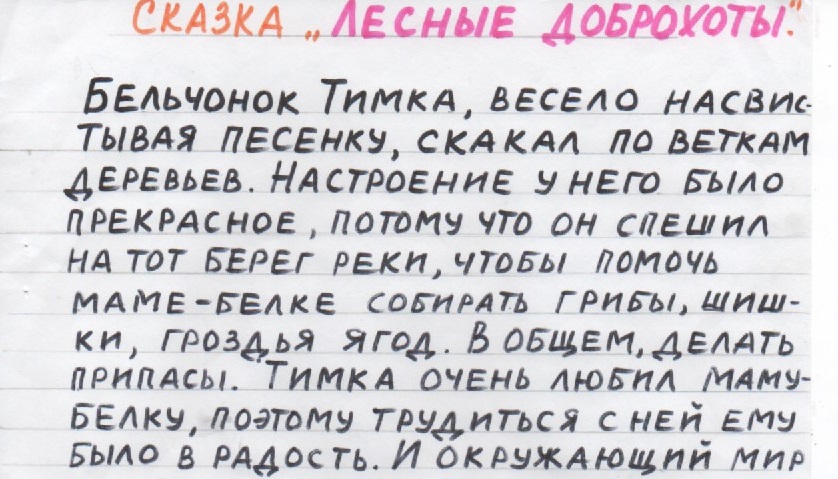 СКАЗКА „ЛЕСНЫЕ ДОБРОХОТЫ."
БЕЛЬЧОНОК ТИМКА, ВЕСЕЛО НАСВИС-
ТЫВАЯ ПЕСЕНКУ, СКАКАЛ ПО ВЕТКАМ
ДЕРЕВЬЕВ. НАСТРОЕНИЕ У НЕГО БЫЛО
ПРЕКРАСНОЕ, ПОТОМУ ЧТО ОН СПЕШИЛ
НА ТОТ БЕРЕГ РЕКИ, ЧТОБЫ ПОМОЧЬ
МАМЕ-БЕЛКЕ СОБИРАТЬ ГРИБЫ, ШИШ-
КИ, ГРОЗДЬЯ ЯГОД. В ОБЩЕМ, ДЕЛАТЬ
ПРИПАСЫ. ТИМКА ОЧЕНЬ ЛЮБИЛ МАМУ-
БЕЛКУ, ПОЭТОМУ ТРУДИТЬСЯ С НЕЙ ЕМУ
БЫЛО В РАДОСТЬ. И ОКРУЖАЮЩИЙ МИР